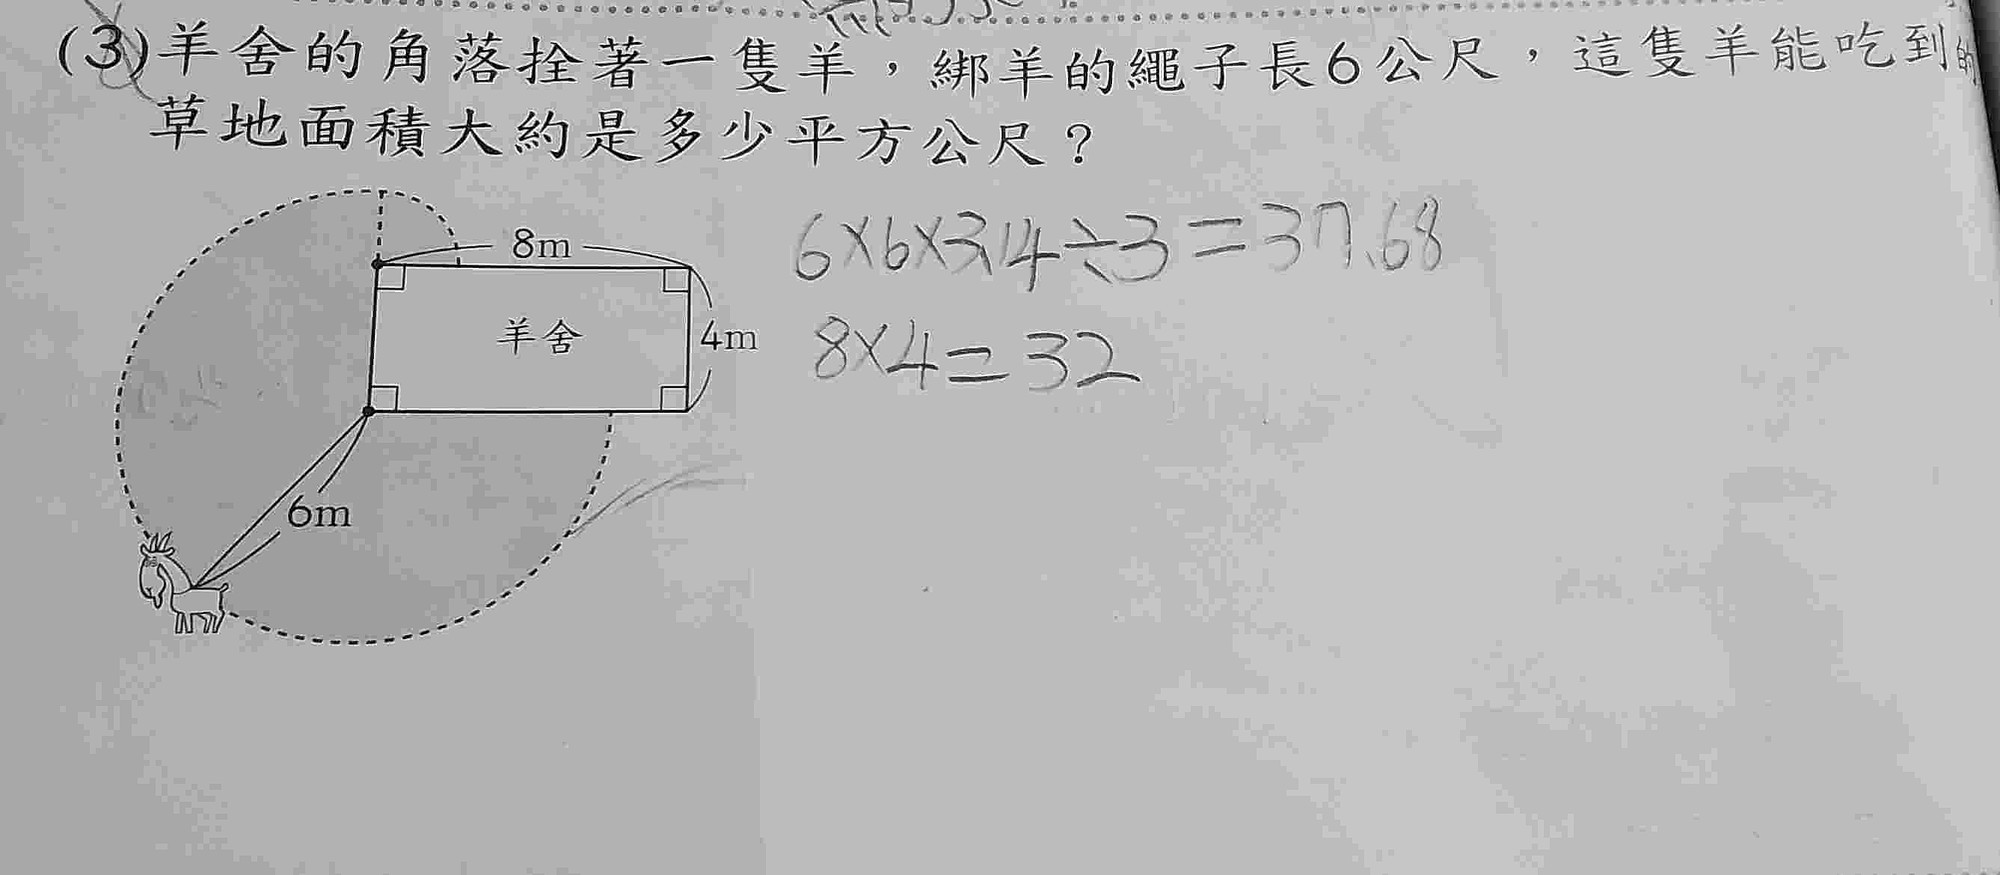 (3)羊舍的角落拴著一隻羊，綁羊的繩子長6公尺，這隻羊能吃到的
草地面積大約是多少平方公尺？
6×6×3.14÷3=37.68
8m
羊舍
4m
8×4=32
6m